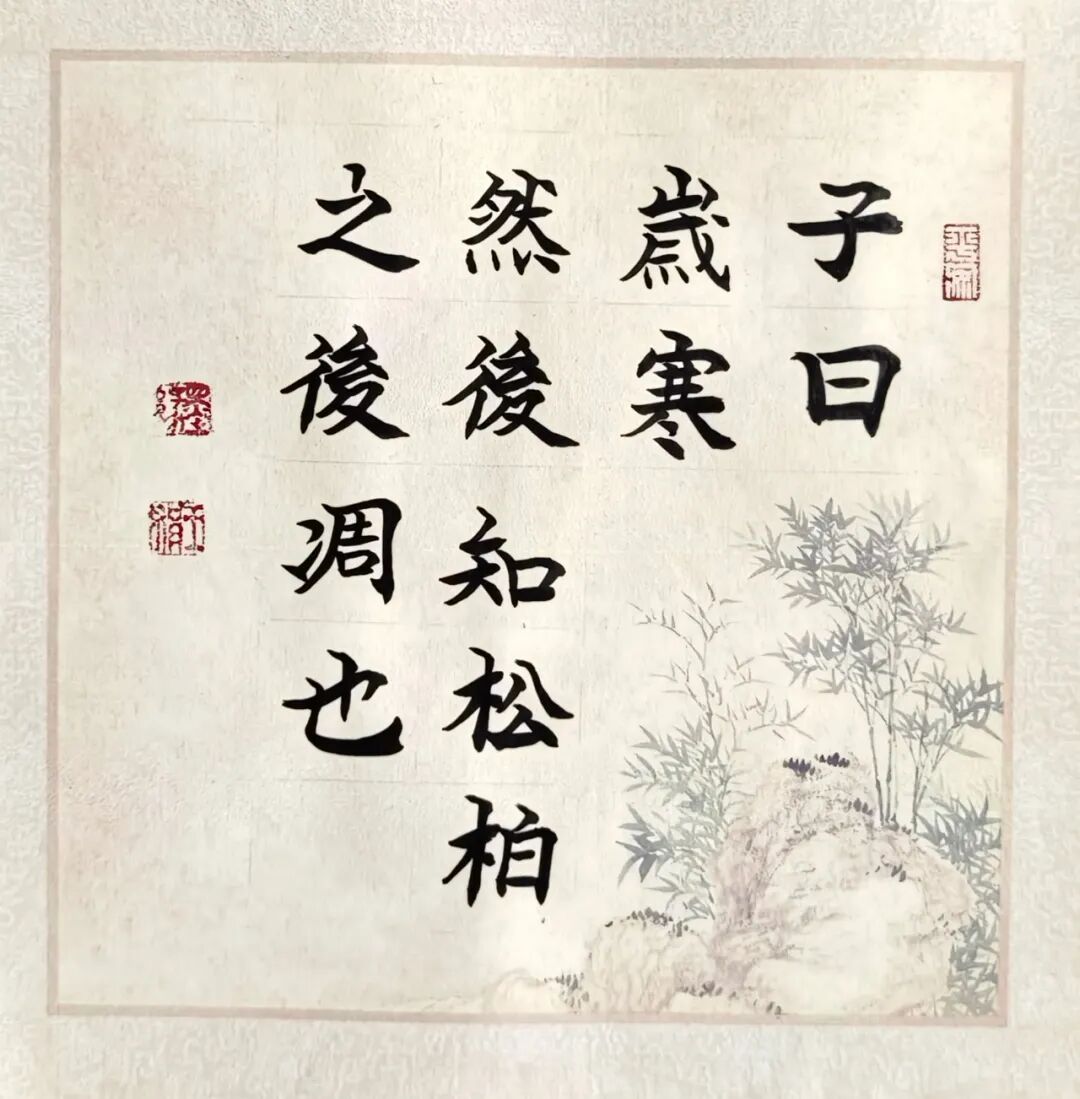 子曰
歲寒
然後知松柏
之後凋也